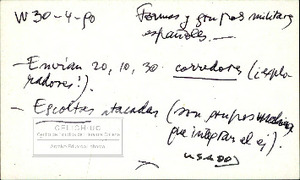 W 30-4-90
Formas y grupos militares
españoles.—
—Envían 20, 10, 30 corredores (¡explo-
radores!).
— Escoltas atacadas (son grupos
que integran el ej).
usados
CELICH-UC